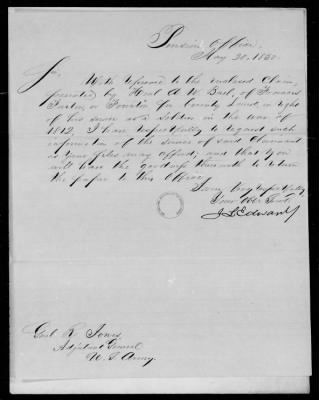 Pension Office
May 20, 1850.
Sir,
With reference to the enclosed Claim,
presented by Hon'l A. W. Buel, of Francis
or for Bounty Land, in right
of his service as a Soldier in the war of
1812, I have respectfully to request such
information of the service of said Claimant
as your files may afford; and that you
will have the goodness therewith to return
the paper to this Office.
I am, Very respectfully
Your Obt. Servt.
J L Edwards
Genl R. Jones
Adjutant General
U. S. Army.